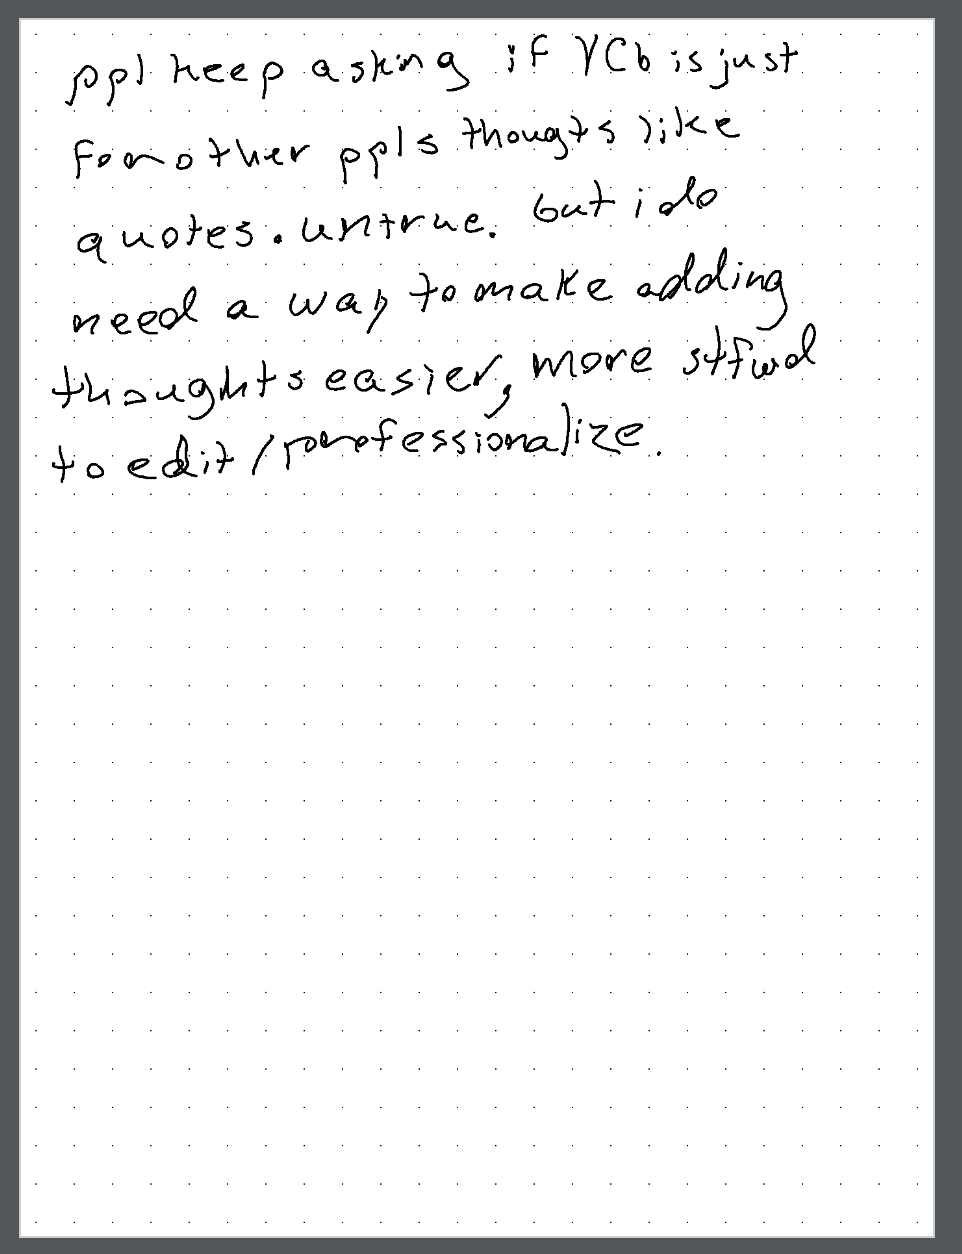 ppl keep asking if YCb is just
for other ppls thougts like
quotes. untrue. but i do
need a way to make adding
thoughts easier, more stfwd
to edit/professionalize.